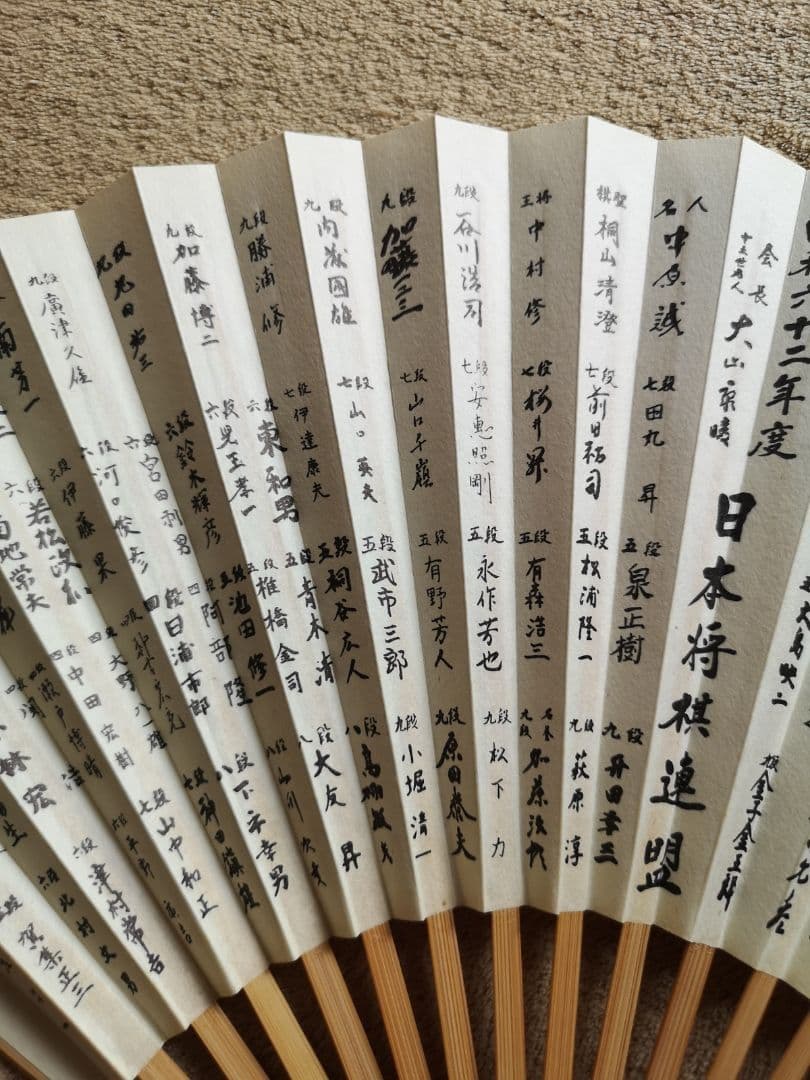 昭和六十二年度
日本将棋連盟
会長
十五世名人
大山康晴
名人
中原誠
七段
田丸昇
五段
泉正樹
九段
升田幸三
棋聖
桐山清澄
七段
前田祐司
五段
松浦隆一
九段
萩原淳
王将
中村修
七段
桜井昇
五段
有森浩三
名誉
九段
加藤治郎
九段
谷川浩司
七段
安恵照剛
五段
永作芳也
九段
松下力
九段
加藤一二三
七段
山口千嶺
五段
有野芳人
九段
原田泰夫
九段
内藤國雄
七段
山口英夫
五段
武市三郎
九段
小堀清一
九段
勝浦修
七段
伊達康夫
五段
桐谷広人
八段
高柳敏夫
九段
加藤博二
六段
東和男
五段
青木清
八段
大友昇
九段
六段
児玉孝一
五段
椎橋金司
八段
九段
廣津久雄
六段
鈴木輝彦
五段
池田修一
八段
下平幸男
南芳一
六段
宮田利男
四段
阿部隆
七段
六段
河口俊彦
四段
日浦市郎
七段
山中和正
六段
伊藤果
四段
神吉宏充
六段
若松政和
四段
大野八一雄
六段
津村常吉
菊地常夫
四段
中田宏樹
六段
北村文男
四段
瀬戸博晴
六段
賀集正三
小林宏
金子金五郎